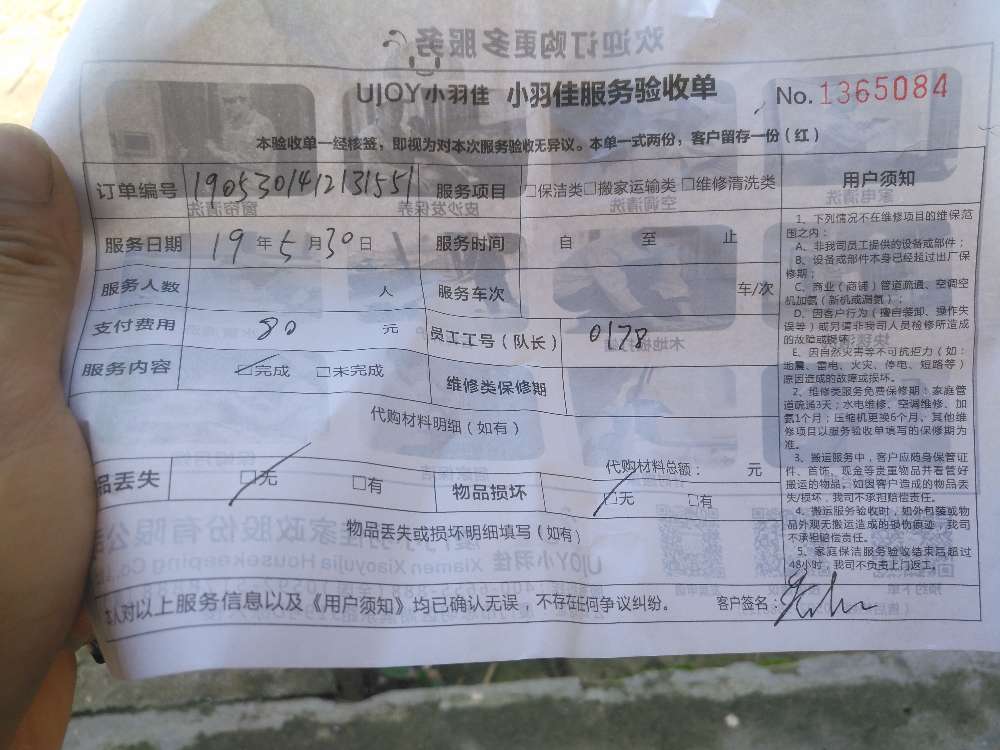 UJOY小羽佳 小羽佳服务验收单 No.1365084
本验收单一经核签，即视为对本次服务验收无异议。本单一式两份，客户留存一份（红）
订单编号 190530141213155 服务项目 □保洁类□搬家运输类 □维修清洗类
服务日期 19 年 5 月 30 日 服务时间 自 至 止
服务人数 人 服务车次 车/次
支付费用 80 元 员工工号（队长） 0178
服务内容 ☑完成 □未完成 维修类保修期
代购材料明细（如有）
代购材料总额： 元
品丢失 ☑无 □有 物品损坏 ☑无 □有
物品丢失或损坏明细填写（如有）
本人对以上服务信息以及《用户须知》均已确认无误，不存在任何争议纠纷。 客户签名：
用户须知
1、下列情况不在维修项目的维保范
围之内：
A、非我司员工提供的设备或部件；
B、设备或部件本身已经超过出厂保
修期；
C、商业（商铺）管道疏通、空调空
机加氨（新机或漏氨）；
D、因客户行为（擅自装卸、操作失
误等）或另请非我司人员检修所造成
的故障或损坏；
E、因自然灾害等不可抗拒力（如：
地震、雷电、火灾、停电、短路等）
原因造成的故障或损坏。
2、维修类服务免费保修期：家庭管
道疏通3天；水电维修、空调维修、加
氨1个月；压缩机更换6个月、其他维
修项目以服务验收单填写的保修期为
准。
3、搬运服务中，客户应随身保管证
件、首饰、现金等贵重物品并看管好
搬运的物品，如因客户造成的物品丢
失/损坏，我司不承担赔偿责任。
4、搬运服务验收时，如外包装或物
品外观无搬运造成的损伤痕迹，我司
不承担赔偿责任。
5、家庭保洁服务验收结束后超过
48小时，我司不负责上门返工。
欢迎订购更多服务
窗帘清洗
皮沙发保养
空调清洗
家电清洗
UJOY小羽佳 Xiamen Xiaoyujia Housekeeping